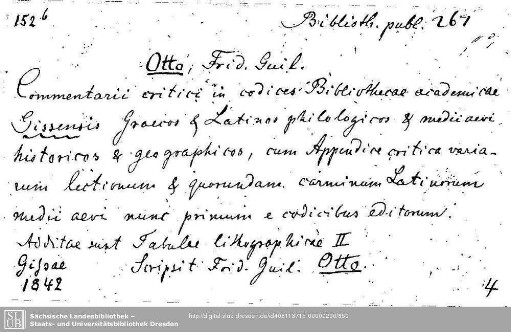 152b Biblioth. publ. 261
Otto, Frid. Guil.
Commentarii critici in codices Bibliothecae academicae
Gissensis Graecos & Latinos philologicos & medii aevi
historicos & geographicos, cum Appendice critica varia-
rum lectionum & quorundam carminum Latinorum
medii aevi nunc primum e codicibus editorum.
Additae sunt Tabulae lithographicae II
Gissae Scripsit Frid. Guil. Otto.
1842 4
Sächsische Landesbibliothek –
Staats- und Universitätsbibliothek Dresden